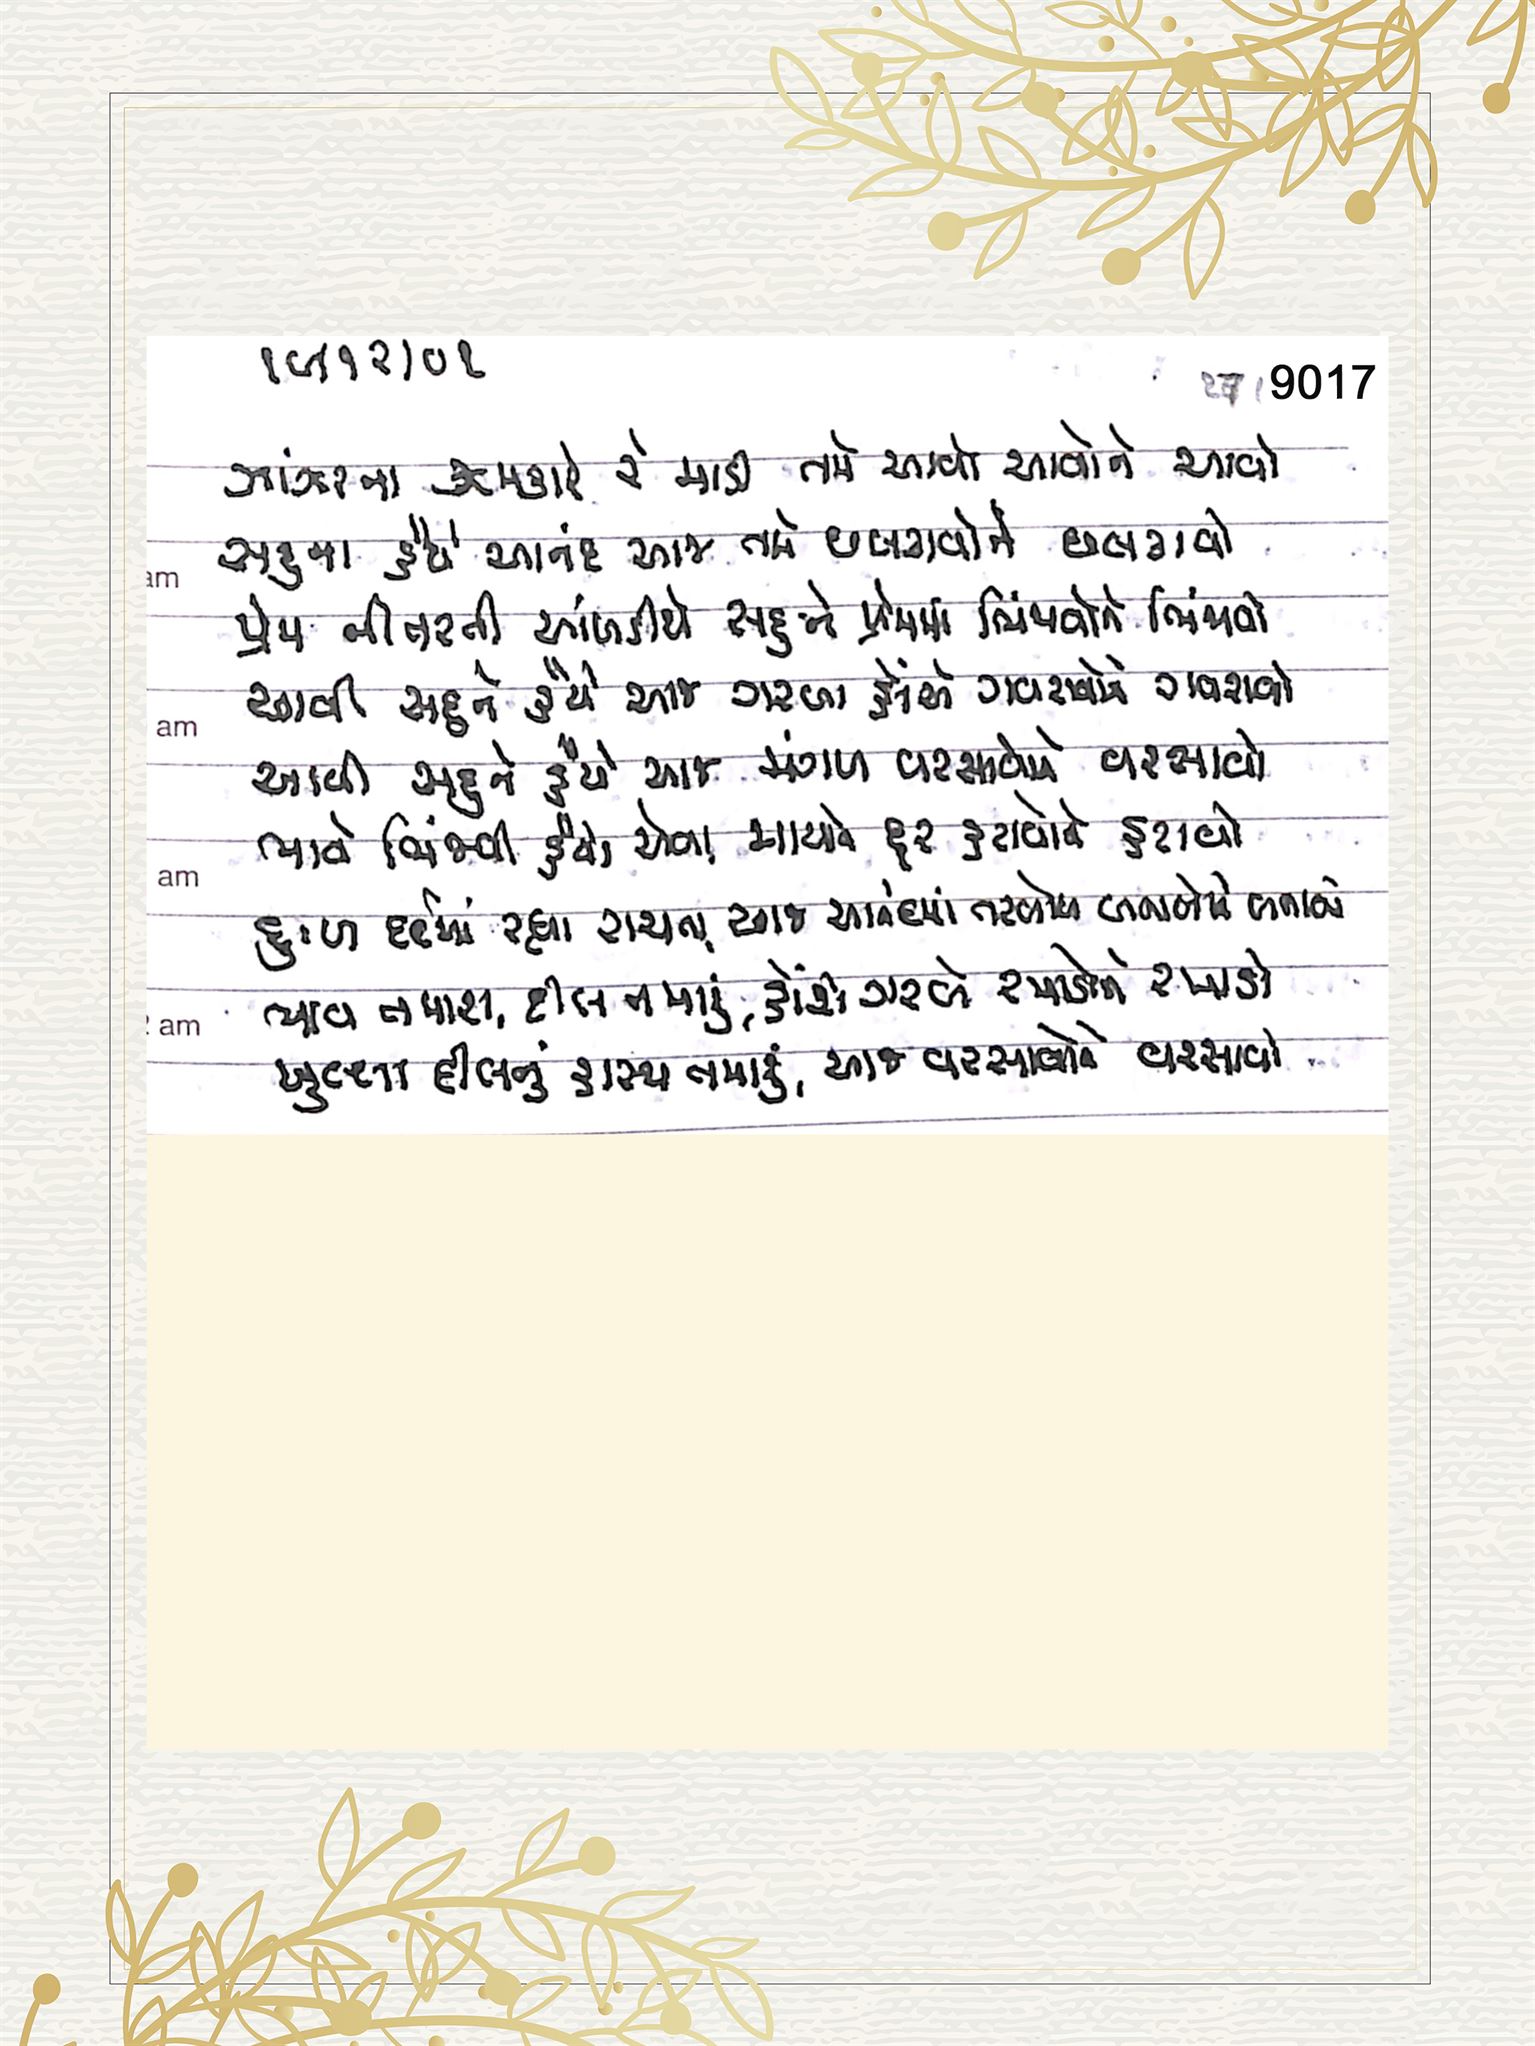 9017
ઝાંઝરના ઝમકારે રે માડી તમે આવો આવોને આવો
સહુના હૈયે આનંદ આજ તમે છલકાવોને છલકાવો
પ્રેમ નીતરતી આંખડીયે સહુને પ્રેમમાં ભિંજવોને ભિંજવો
આવી સહુને હૈયે આજ ગરબા હોંશે ગવરાવોને ગવરાવો
આવી સહુને હૈયે આજ મંગળ વરસાવોને વરસાવો
ભાવે ભિંજવી હૈયાં એવા, માયાને દૂર હટાવોને હટાવો
દુઃખ દર્દમાં રહ્યા રાચતા, આજ આનંદમાં તરબોળ બનાવોને બનાવો
ભાવ તમારા, દીલ તમારું, હોંશે ગરબે રમાડોને રમાડો
ખુલ્લા દીલનું હાસ્ય તમારું, આજ વરસાવોને વરસાવો
am
am
am
am